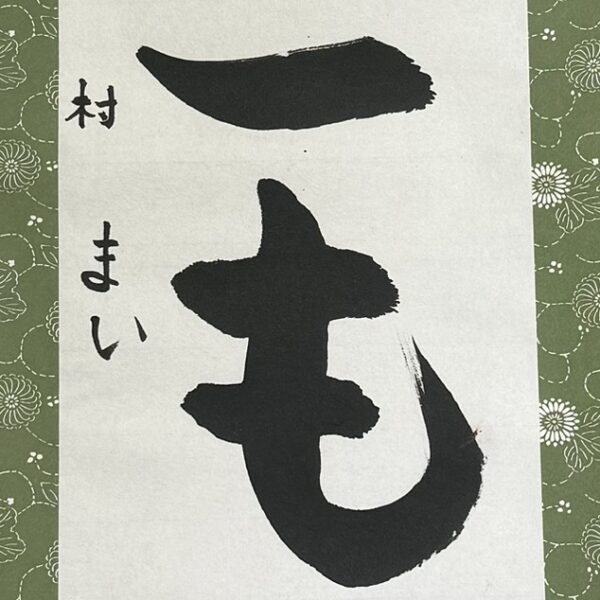 一も
村 まい